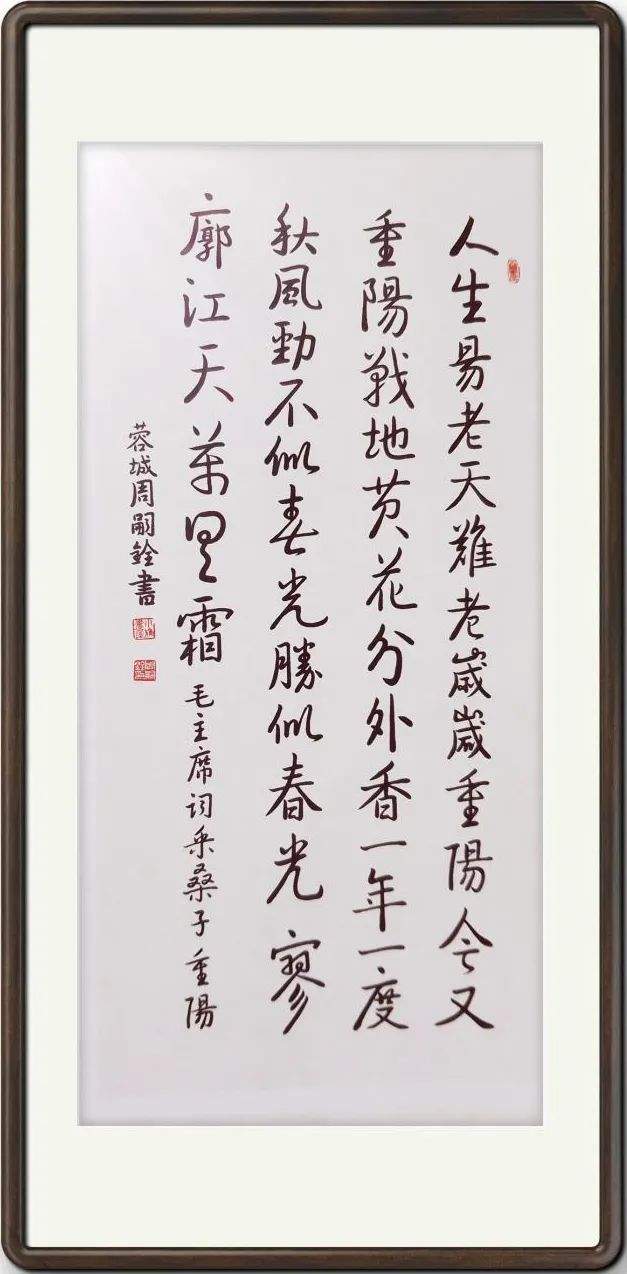 人生易老天難老歲歲重陽今又
重陽戰地黃花分外香一年一度
秋風勁不似春光勝似春光寥
廓江天萬里霜 毛主席詞采桑子重陽
蓉城周嗣銓書